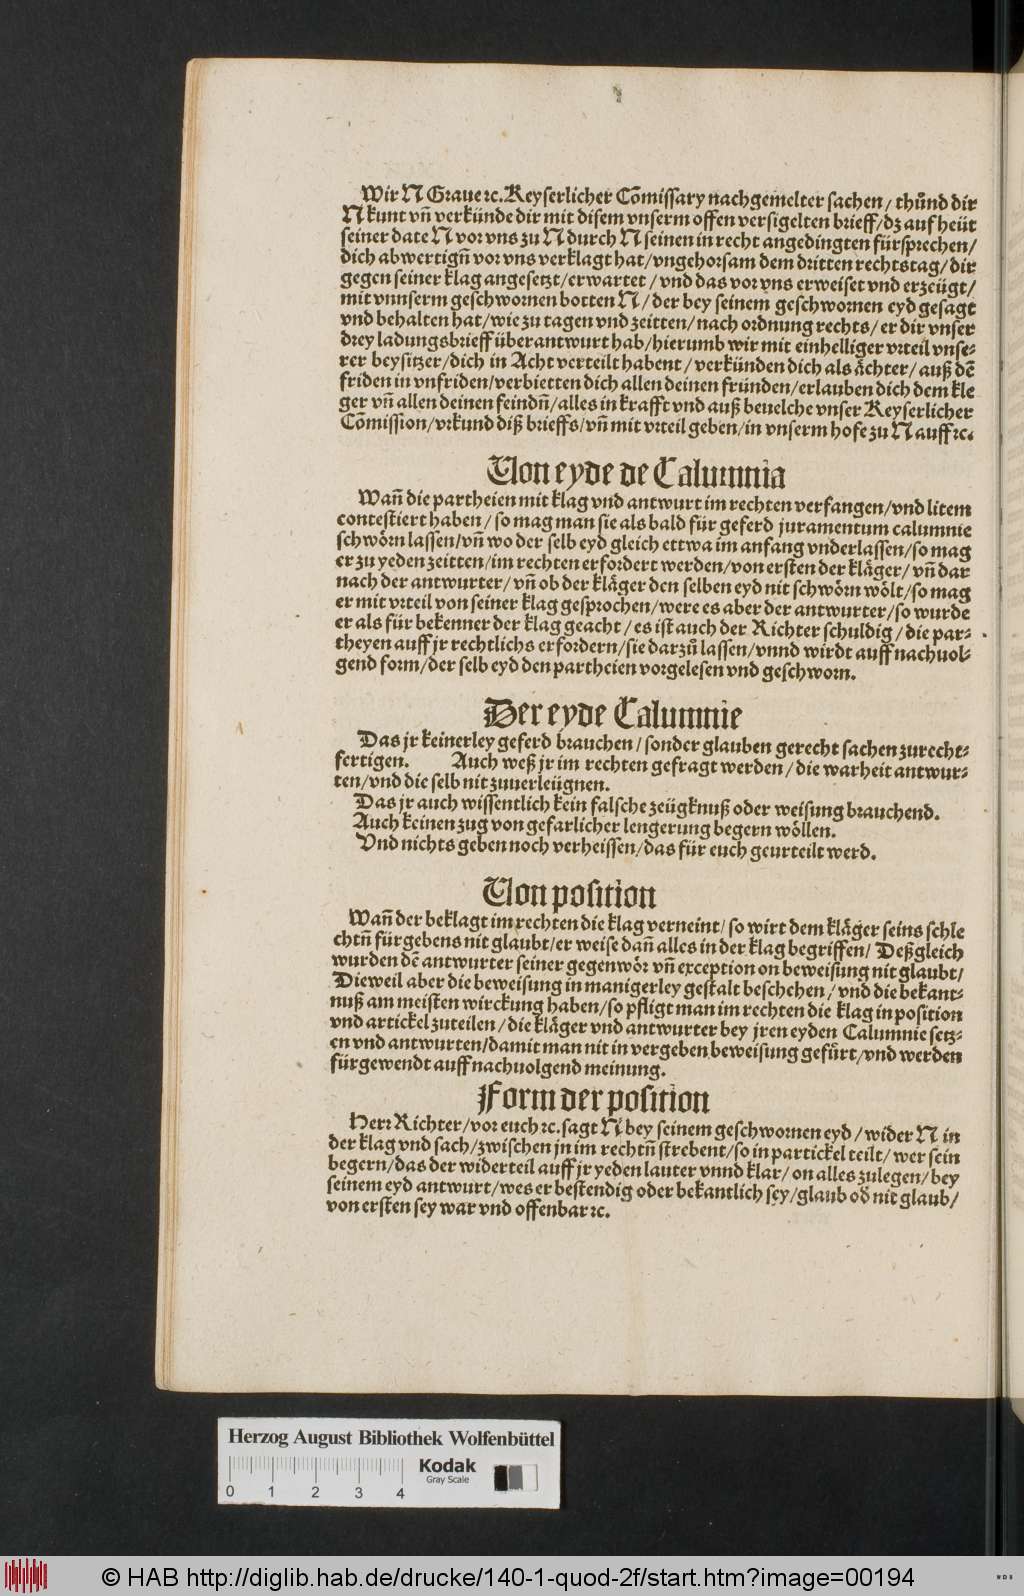 Wir N Graue ꝛc. Keyserlicher Cõmissary nachgemelter sachen / thůnd dir
N kunt vñ verkünde dir mit disem vnserm offen versigelten brieff / dz auf heüt
seiner date N vor vns zu N durch N seinen in recht angedingten fürsprechen /
dich abwertigñ vor vns verklagt hat / vngehorsam dem dritten rechtstag / dir
gegen seiner klag angesetzt / erwartet / vnd das vor vns erweiset vnd erzeügt /
mit vnnserm geschwornen botten N / der bey seinem geschwornen eyd gesagt
vnd behalten hat / wie zu tagen vnd zeitten / nach ordnung rechts / er dir vnser
drey ladungsbrieff überantwurt hab / hierumb wir mit einhelliger vrteil vnse⸗
rer beysitzer / dich in Acht verteilt habent / verkünden dich als ächter / auß dẽ
friden in vnfriden / verbietten dich allen deinen fründen / erlauben dich dem kle
ger vñ allen deinen feindñ / alles in krafft vnd auß beuelche vnser Keyserlicher
Cõmission / vrkund diß brieffs / vñ mit vrteil geben / in vnserm hofe zu N auff ꝛc.
Von eyde de Calumnia
Wañ die partheien mit klag vnd antwurt im rechten verfangen / vnd litem
contestiert haben / so mag man sie als bald für geferd juramentum calumnie
schwörn lassen / vñ wo der selb eyd gleich ettwa im anfang vnderlassen / so mag
er zu yeden zeitten / im rechten erfordert werden / von ersten der kläger / vñ dar
nach der antwurter / vñ ob der kläger den selben eyd nit schwörn wölt / so mag
er mit vrteil von seiner klag gesprochen / were es aber der antwurter / so wurde
er als für bekenner der klag geacht / es ist auch der Richter schuldig / die par⸗
theyen auff jr rechtlichs erfordern / sie darzů lassen / vnnd wirdt auff nachuol⸗
gend form / der selb eyd den partheien vorgelesen vnd geschworn.
Der eyde Calumnie
Das jr keinerley geferd brauchen / sonder glauben gerecht sachen zurecht⸗
fertigen. Auch weß jr im rechten gefragt werden / die warheit antwur⸗
ten / vnd die selb nit zuuerleügnen.
Das jr auch wissentlich kein falsche zeügknuß oder weisung brauchend.
Auch keinen zug von gefarlicher lengerung begern wöllen.
Vnd nichts geben noch verheissen / das für euch geurteilt werd.
Von position
Wañ der beklagt im rechten die klag verneint / so wirt dem kläger seins schle
chtñ fürgebens nit glaubt / er weise dañ alles in der klag begriffen / Deßgleich
wurden dẽ antwurter seiner gegenwör vñ exception on beweisung nit glaubt /
Dieweil aber die beweisung in manigerley gestalt beschehen / vnd die bekant⸗
nuß am meisten wirckung haben / so pfligt man im rechten die klag in position
vnd artickel zuteilen / die kläger vnd antwurter bey jren eyden Calumnie setz⸗
en vnd antwurten / damit man nit in vergeben beweisung gefürt / vnd werden
fürgewendt auff nachuolgend meinung.
Form der position
Herr Richter / vor euch ꝛc. sagt N bey seinem geschwornen eyd / wider N in
der klag vnd sach / zwischen jn im rechtñ strebent / so in partickel teilt / wer sein
begern / das der widerteil auff jr yeden lauter vnnd klar / on alles zulegen / bey
seinem eyd antwurt / wes er bestendig oder bekantlich sey / glaub oď nit glaub /
von ersten sey war vnd offenbar ꝛc.
Herzog August Bibliothek Wolfenbüttel
Kodak
Gray Scale
0 1 2 3 4
© HAB http://diglib.hab.de/drucke/140-1-quod-2f/start.htm?image=00194